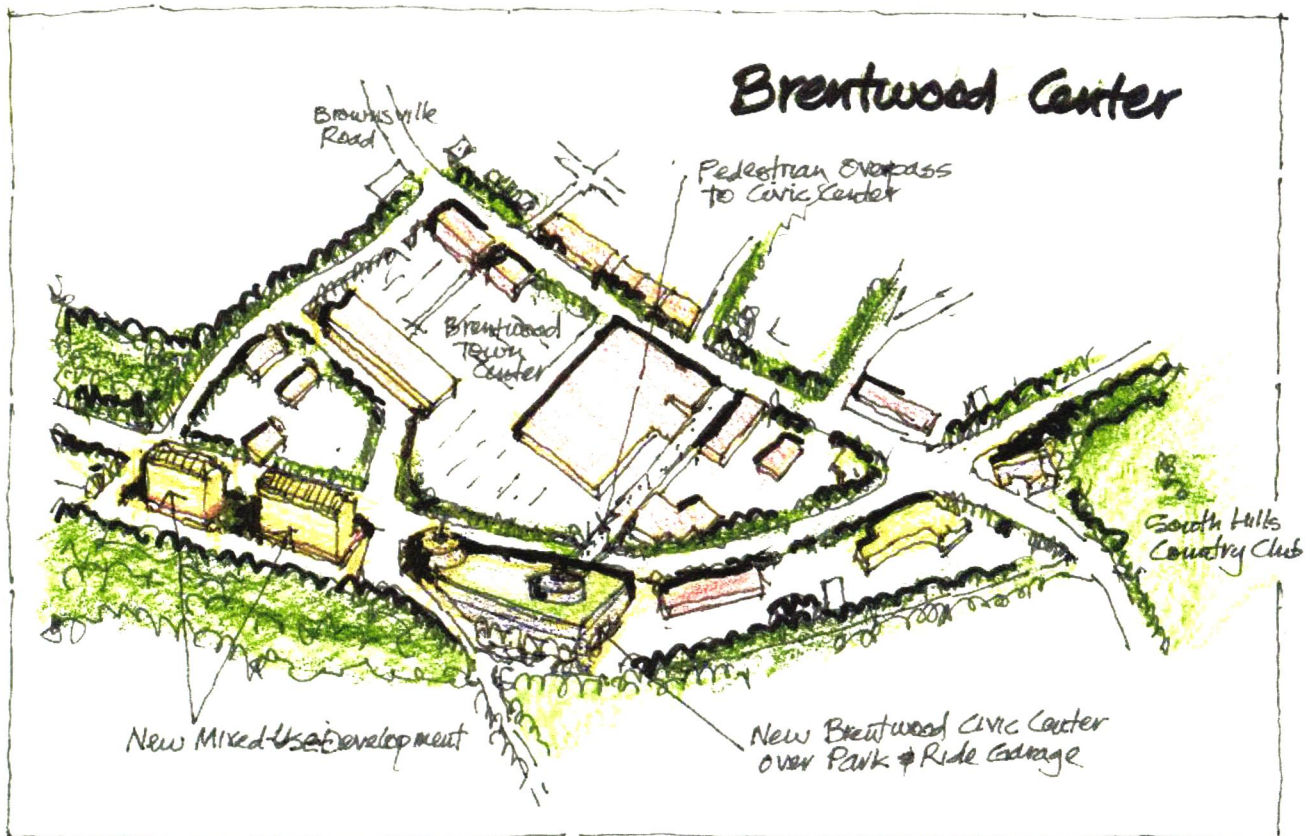 Brentwood Center
Brownsville
Road
Pedestrian Overpass
to Civic Center
Brentwood
Town
Center
South Hills
Country Club
New Mixed-Use Development
New Brentwood Civic Center
over Park & Ride Garage